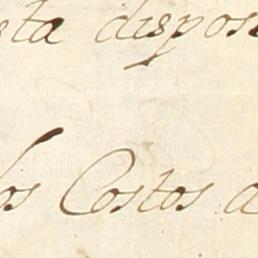 eta dispos
los Costos a